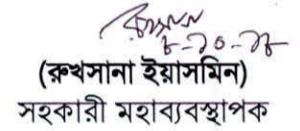 ৮-১০-১৮
(রুখসানা ইয়াসমিন)
সহকারী মহাব্যবস্থাপক